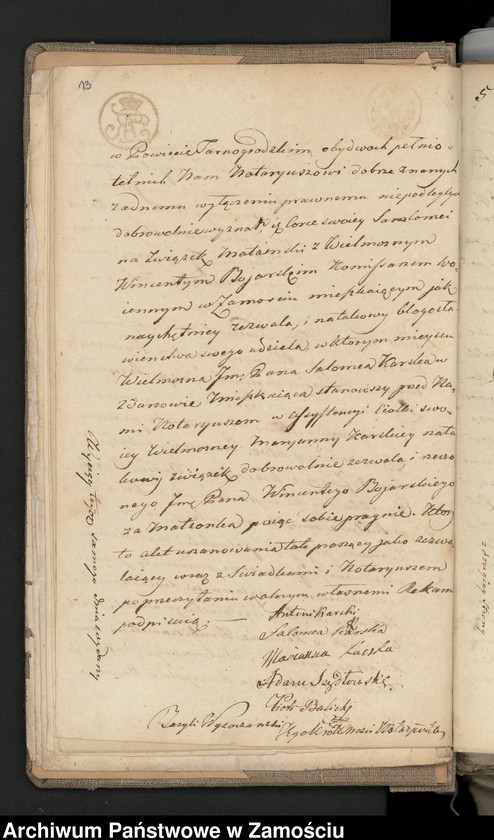 13
w Powiecie Tarnogrodzkim obydwoch pełnio
letnich Nam Notaryuszowi dobrze znanych
żadnemu wyłączeniu prawnemu niepodległych
dobrowolnie wyznał iż Corce swoiey Salomei
na Związek Małżenski z Wielmożnym
Wincentym Bojarskim Komissarzem Wo-
iennym w Zamosciu mieszkaiącym jak
naychętniey zezwala, i na takowy błogosła
wienstwa swego udziela, w ktorym mieyscu
Wielmożna Jmć Pana Salomea Karska w
Zdanowie zmieszkaiąca stanowszy przed Na-
mi Notaryuszem w Assystencyi Ciotki swo-
iey Wielmozney Maryanny Karskiey na ta
kowy związek dobrowolnie zezwala, i rzeczo
nego Jmć Pana Wincentego Bojarskiego
za Małzonka poiąć sobie pragnie. Ktory
to akt uszanowania tak proszący jako zezwa
laiący wraz z Swiadkami i Notaryuszem
po przeczytaniu wolnym własnemi Rękami
podpisuią; —
Antoni Karski
Salomea Karska
Adam Szydłowski
Piotr Balicki
Bazyli
5
Archiwum Państwowe w Zamościu